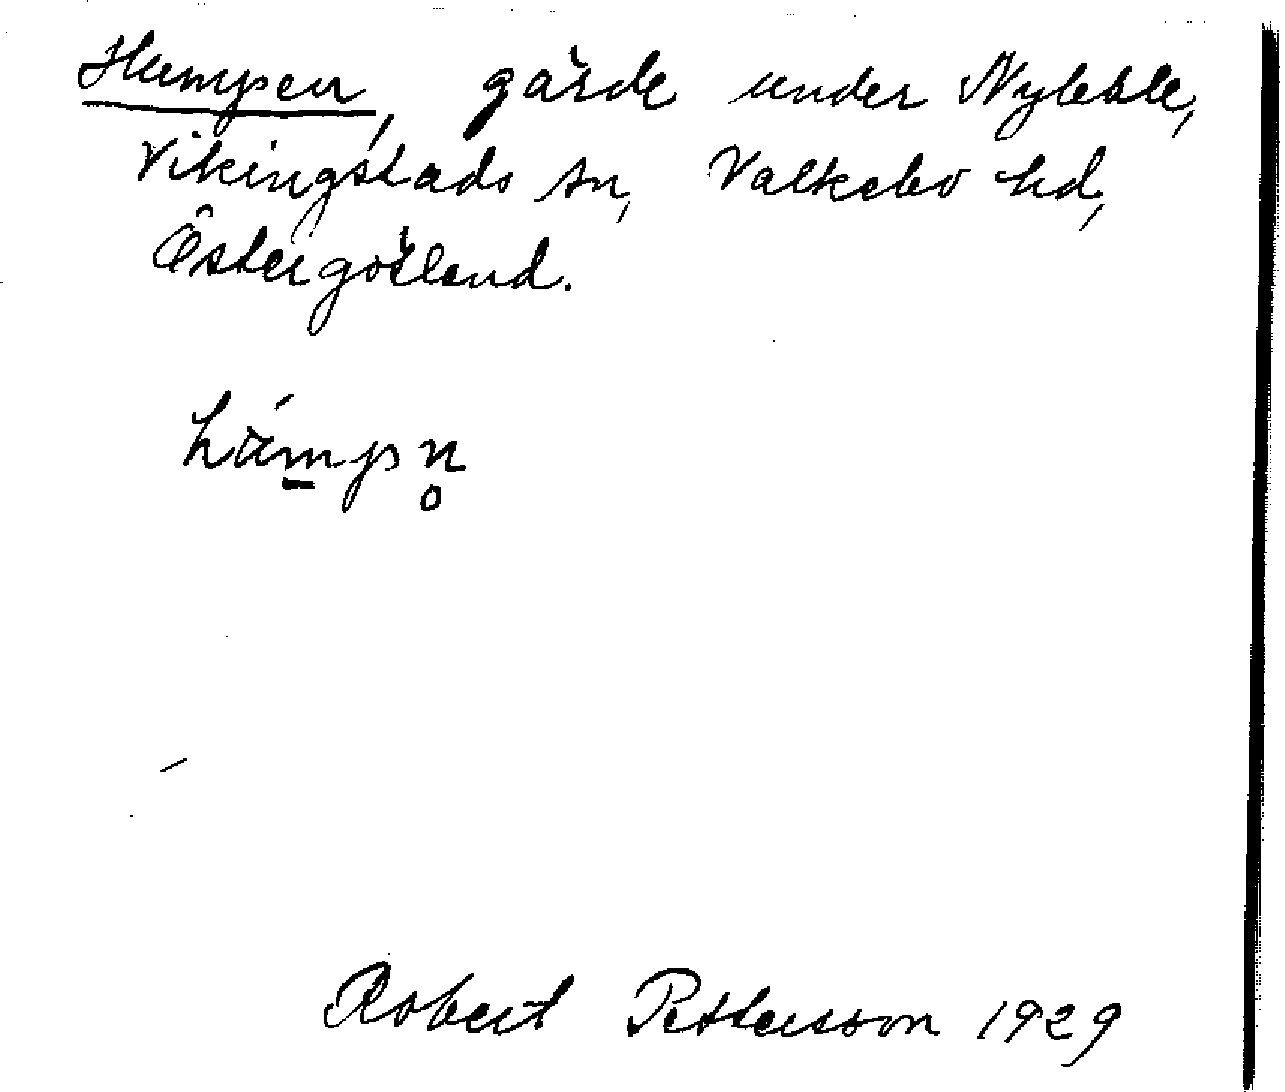 Humpen, gärde under Nybble,
Vikingstads sn, Valkebo hd,
Östergötland.
Robert Pettersson 1929